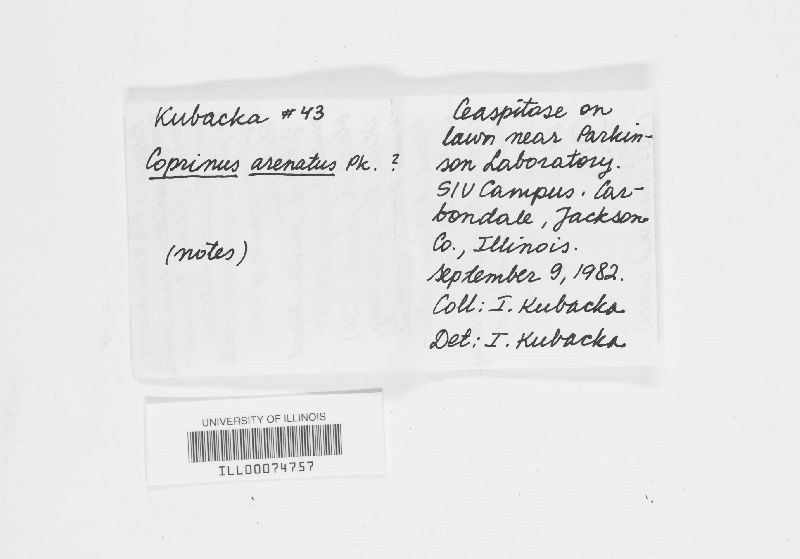 Kubacka #43
Coprinus arenatus Pk. ?
(notes)
Ceaspitose on
lawn near Parkin-
son Laboratory.
SIU Campus. Car-
bondale, Jackson
Co., Illinois.
September 9, 1982.
Coll: I. Kubacka
Det: I. Kubacka
UNIVERSITY OF ILLINOIS
ILL00074757